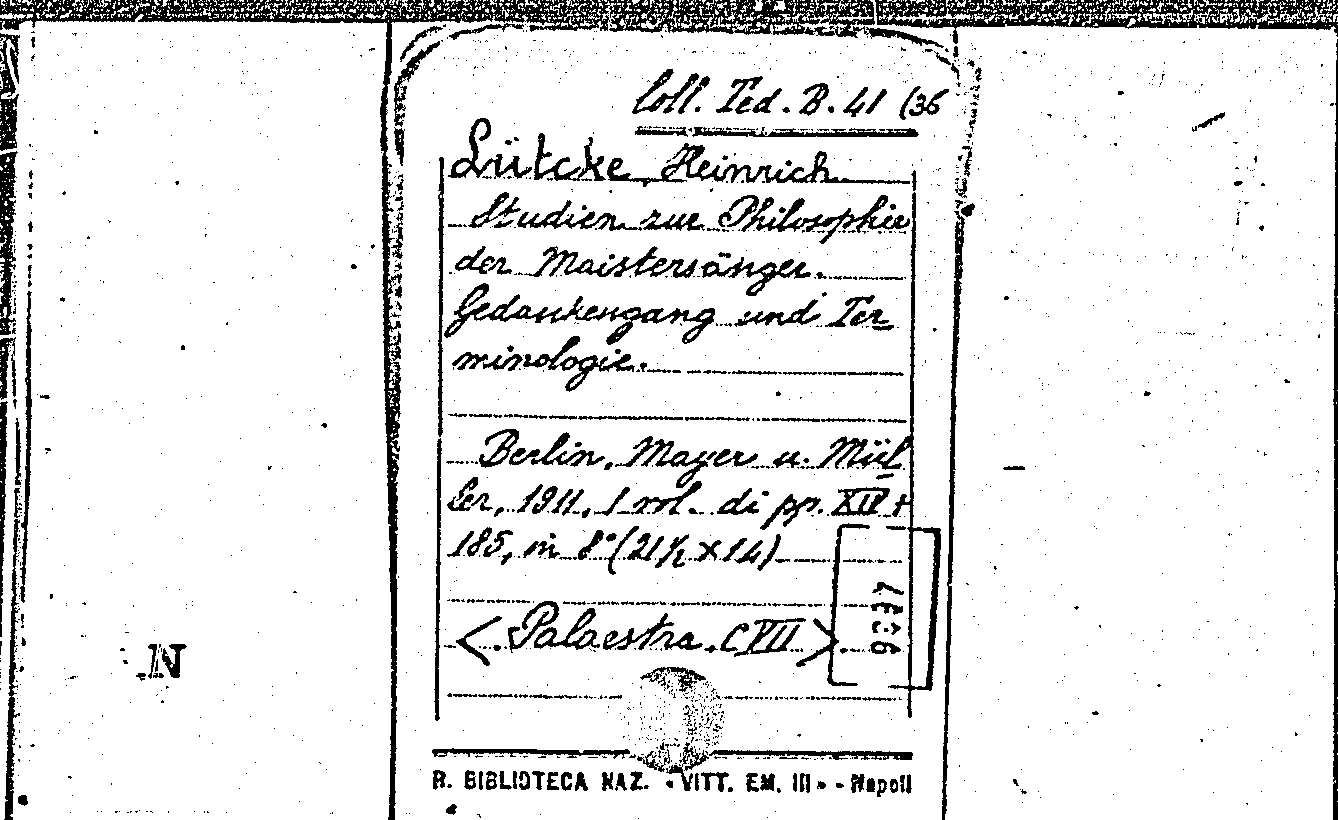 Coll. Ted. B. 41 (36
Lütcke, Heinrich.
Studien zur Philosophie
der Maistersänger.
Gedankengang und Ter
minologie.
Berlin, Mayer u. Mül
ler, 1911, 1 vol. di pp. XIV +
185, in 8° (21½ × 14)
< Palaestra. CVII >
R. BIBLIOTECA NAZ. « VITT. EM. III » - Napoli
N